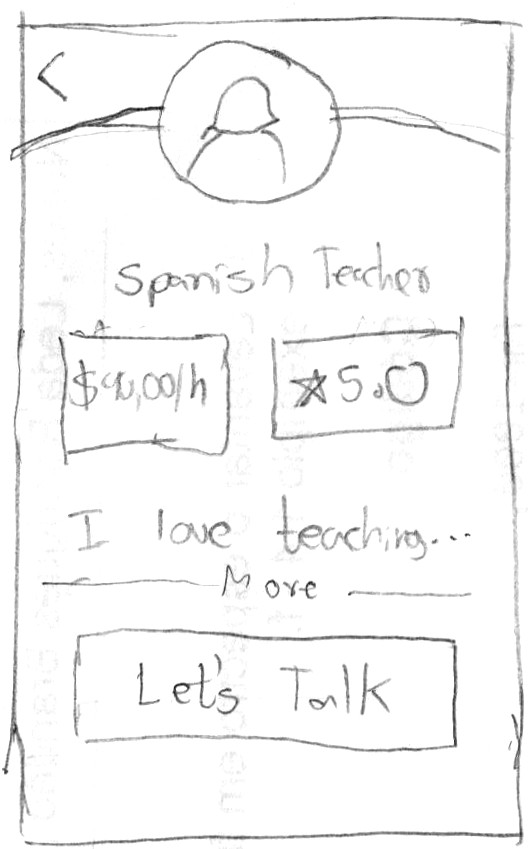 <
Spanish Teacher
$90,00/h ★5.0
I love teaching...
More
Let's Talk